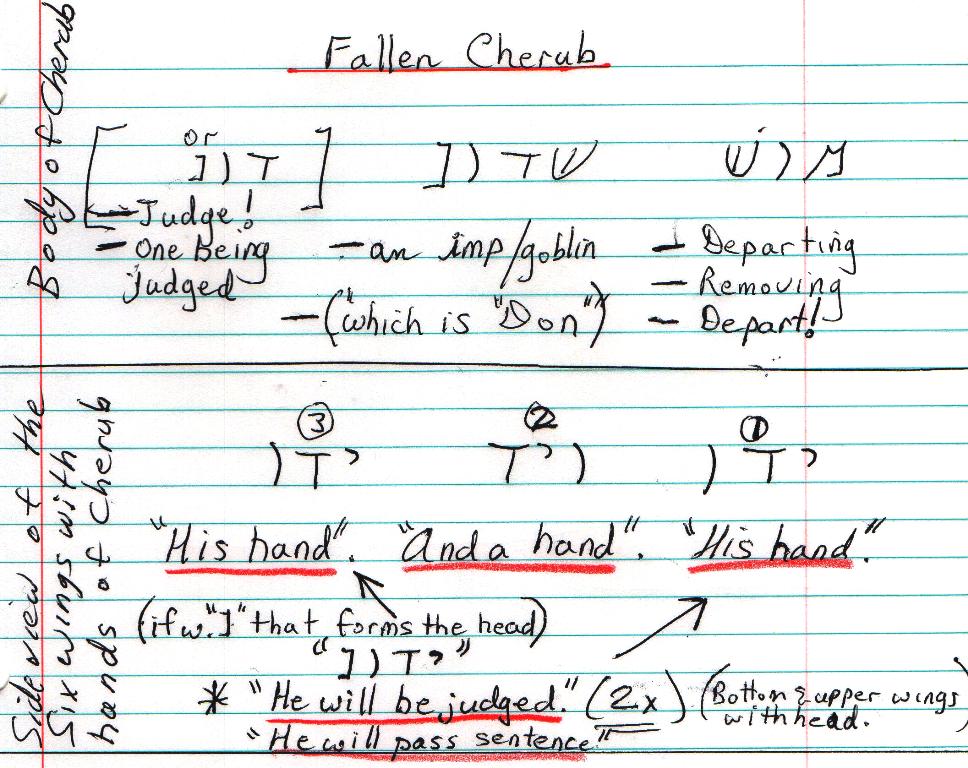 Fallen Cherub
Body of Cherub
or
[דונ] שדונ מוש
– Judge!
– One Being judged
– an imp/goblin
– ("which is "Don")
– Departing
– Removing
– Depart!
Side view of the
Six wings with
hands of Cherub
③ ② ①
ידו ויד ידו
"His hand". "And a hand". "His hand."
(if w. "נ" that forms the head)
"ידונ"
* "He will be judged." (2x) (Bottom & upper wings with head.
"He will pass sentence"